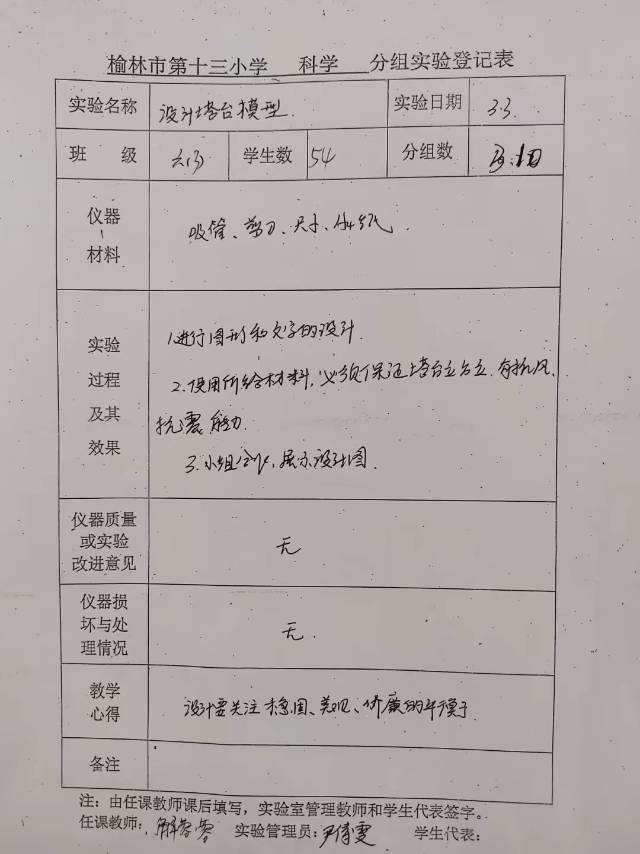 榆林市第十三小学 科学 分组实验登记表
实验名称 设计塔台模型 实验日期 3.3
班 级 六(3) 学生数 54 分组数
仪器
材料
吸管、剪刀、尺子、A4纸
实验
过程
及其
效果
1.进行图形和文字的设计.
2.使用所给材料,必须保证塔台立. 有抗风、
抗震能力.
3.小组合作,展示设计图.
仪器质量
或实验
改进意见
无
仪器损
坏与处
理情况
无.
教学
心得
设计要关注稳固、美观、价廉
备注
注:由任课教师课后填写,实验室管理教师和学生代表签字。
任课教师: 实验管理员: 学生代表: